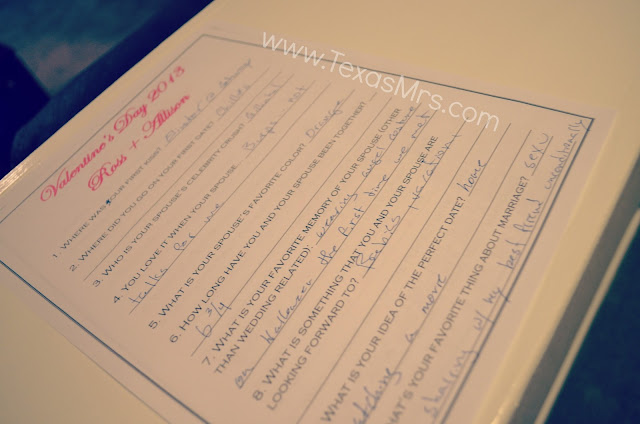 www.TexasMrs.com
Valentine's Day 2013
Ross + Allison
1. WHERE WAS YOUR FIRST KISS?
2. WHERE DID YOU GO ON YOUR FIRST DATE? Chili's
3. WHO IS YOUR SPOUSE'S CELEBRITY CRUSH?
4. YOU LOVE IT WHEN YOUR SPOUSE not
talks for me
5. WHAT IS YOUR SPOUSE'S FAVORITE COLOR? Orange
6. HOW LONG HAVE YOU AND YOUR SPOUSE BEEN TOGETHER?
6 3/4
7. WHAT IS YOUR FAVORITE MEMORY OF YOUR SPOUSE (OTHER
THAN WEDDING RELATED): wearing angel
on Halloween the first time we met
8. WHAT IS SOMETHING THAT YOU AND YOUR SPOUSE ARE
LOOKING FORWARD TO? + vacation!
WHAT IS YOUR IDEA OF THE PERFECT DATE? home
a movie
WHAT'S YOUR FAVORITE THING ABOUT MARRIAGE? sex
sharing w/ my best friend